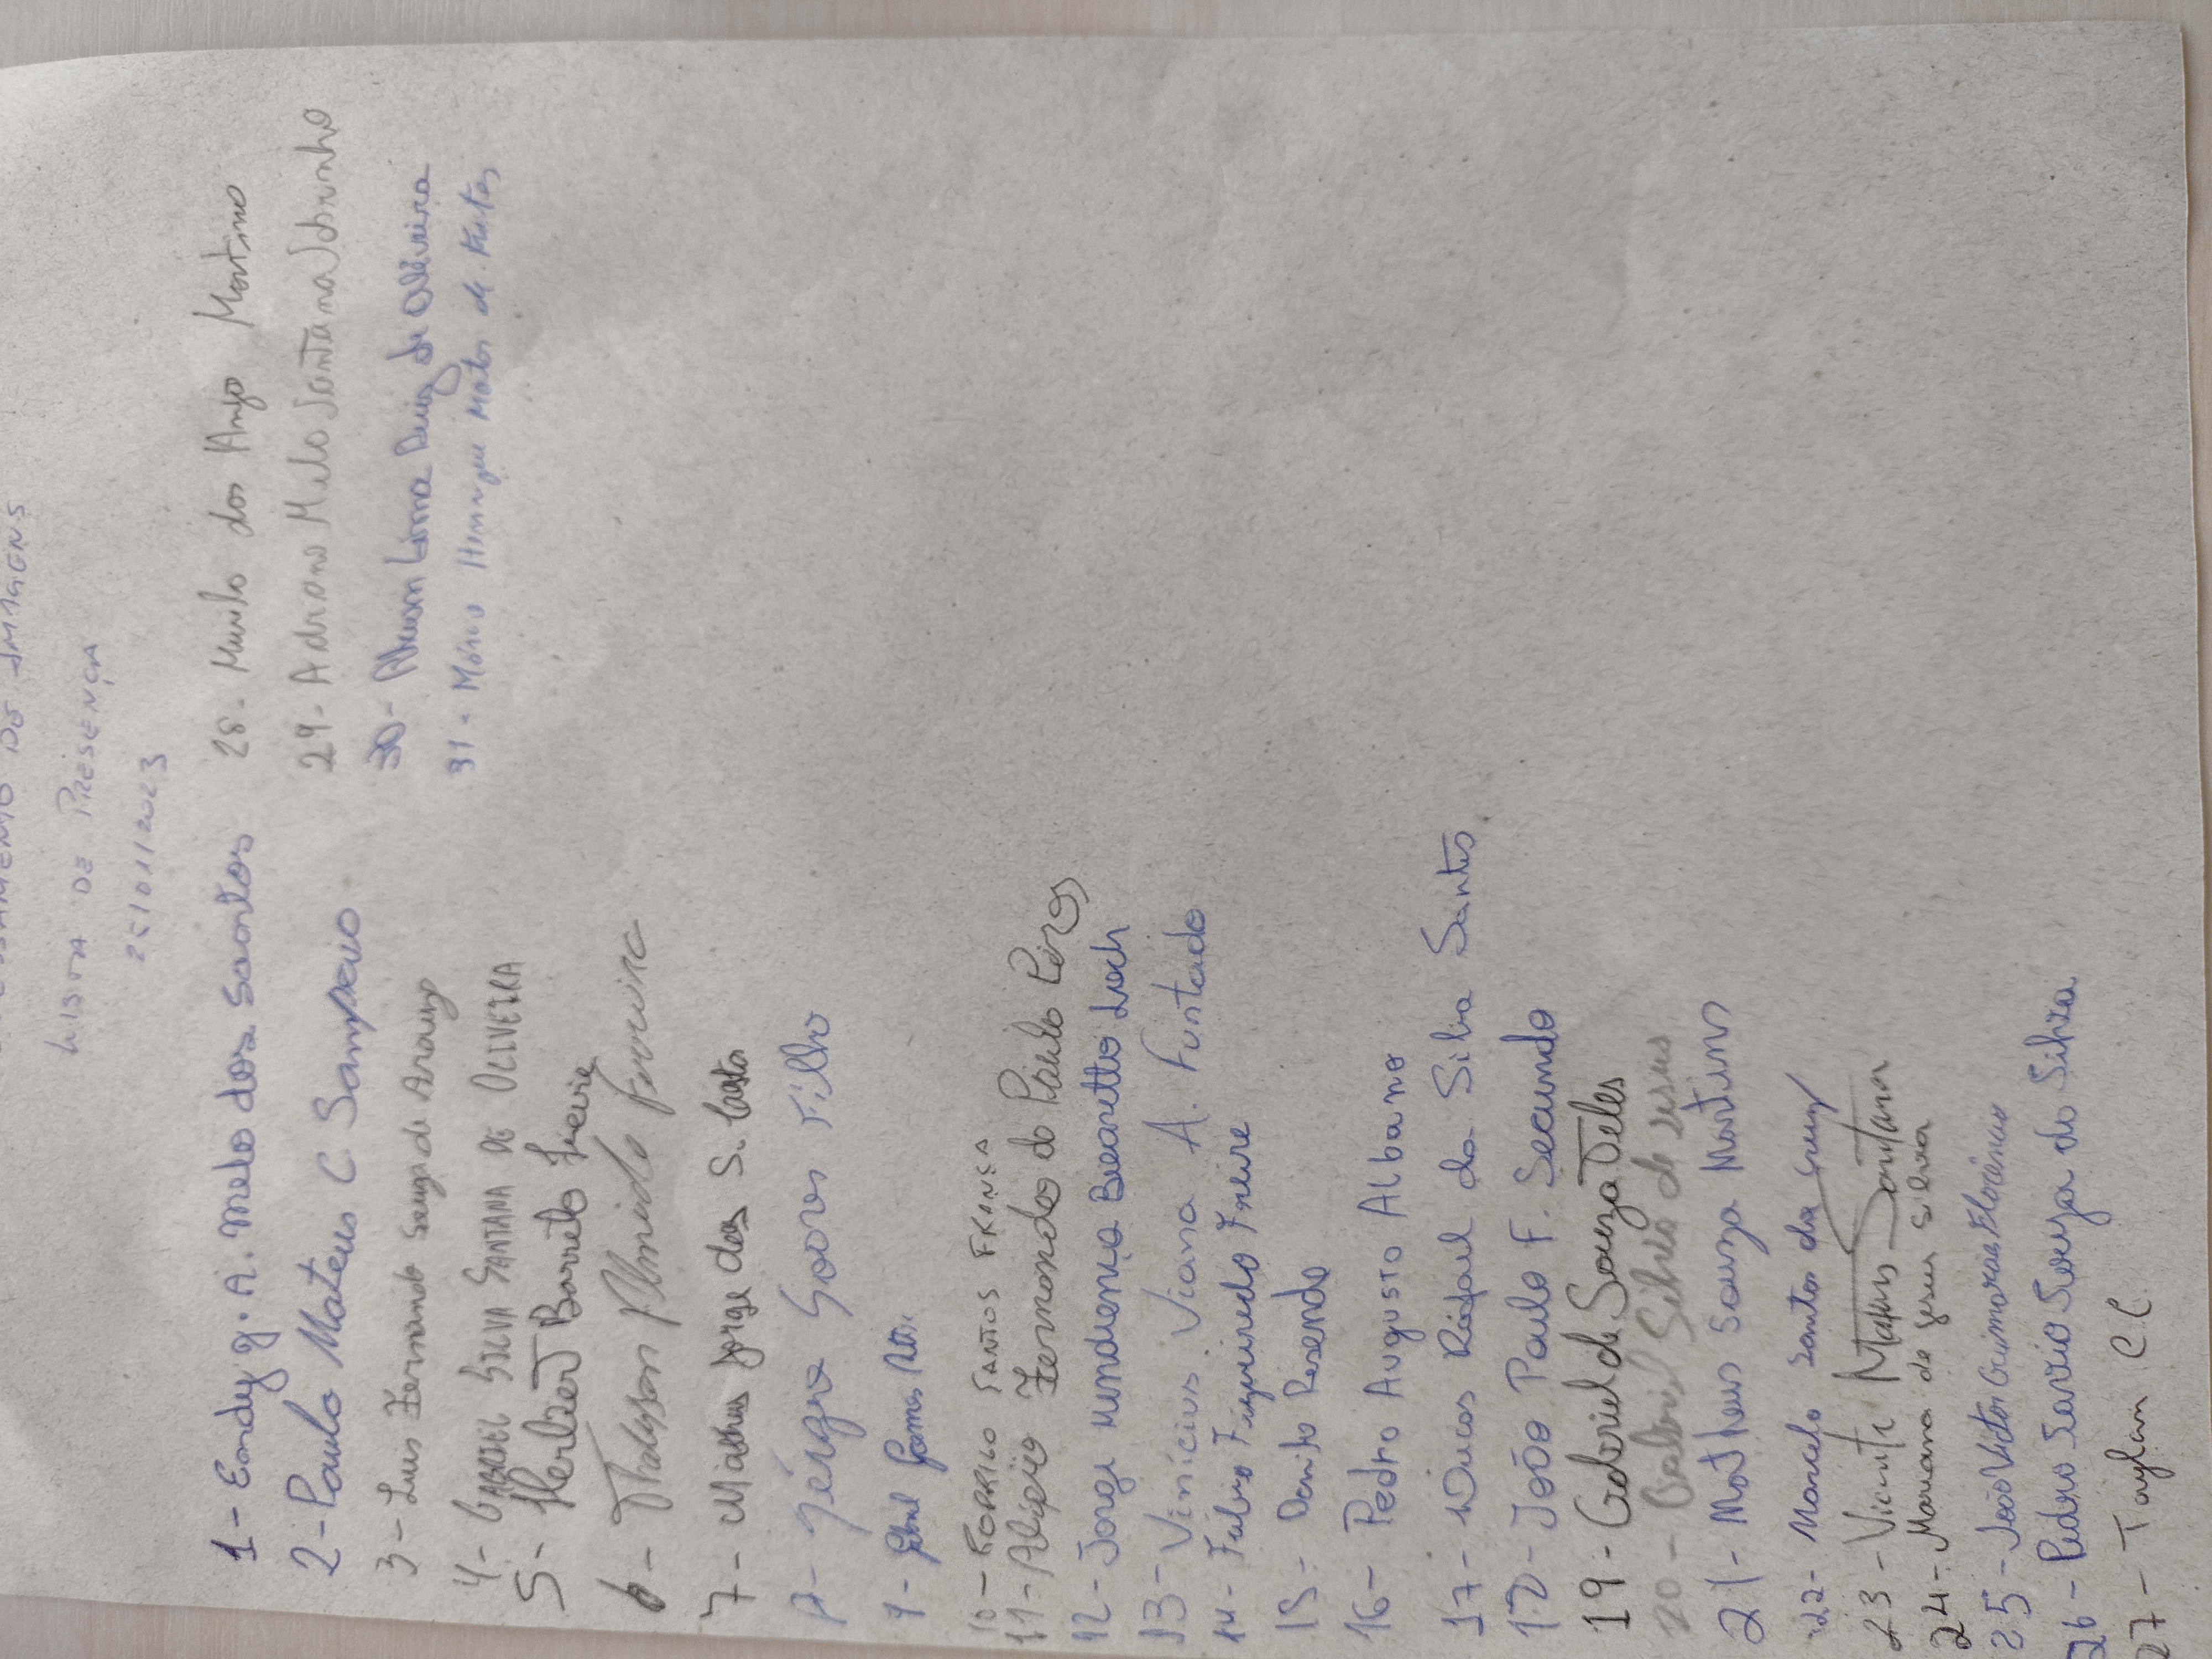 DE IMAGENS
LISTA DE PRESENÇA
25/01/2023
1- Endy g. A. Melo dos Santos
2- Paulo Mateus C. Sampaio
3- Luis Fernando Souza de Araujo
4- GABRIEL SILVA SANTANA DE OLIVEIRA
5- Herbert Barreto Freire
6- Thalysson Almeida Ferreira
7- Matheus Jorge dos S. Costa
8- Sérgio Soares Filho
9- Gabriel Gomes
10- RODRIGO SANTOS FRANÇA
11- Alípio Fernandes de Paulo Pires
12- Jorge Loch
13- Vinícius Viana A. Furtado
14- Fábio Figueiredo Freire
15- Danilo Resende
16- Pedro Augusto Albano
17- Lucas Rafael da Silva Santos
18- João Paulo F. Secundo
19- Gabriel de Souza Teles
20- Gabriel Silva de Jesus
21- Matheus Souza Martins
22- Marcelo Santos da Cruz
23- Vicente Mateus Santana
24- Mariana de Jesus Silva
25- João Victor Guimarães Florêncio
26- Pedro Savio Souza da Silva
27- Taylan C C
28- Murilo dos Anjo Martins
29- Adriano Melo Santana Sobrinho
30- Lima Ruiz de Oliveira
31- Márcio Henrique Matos de